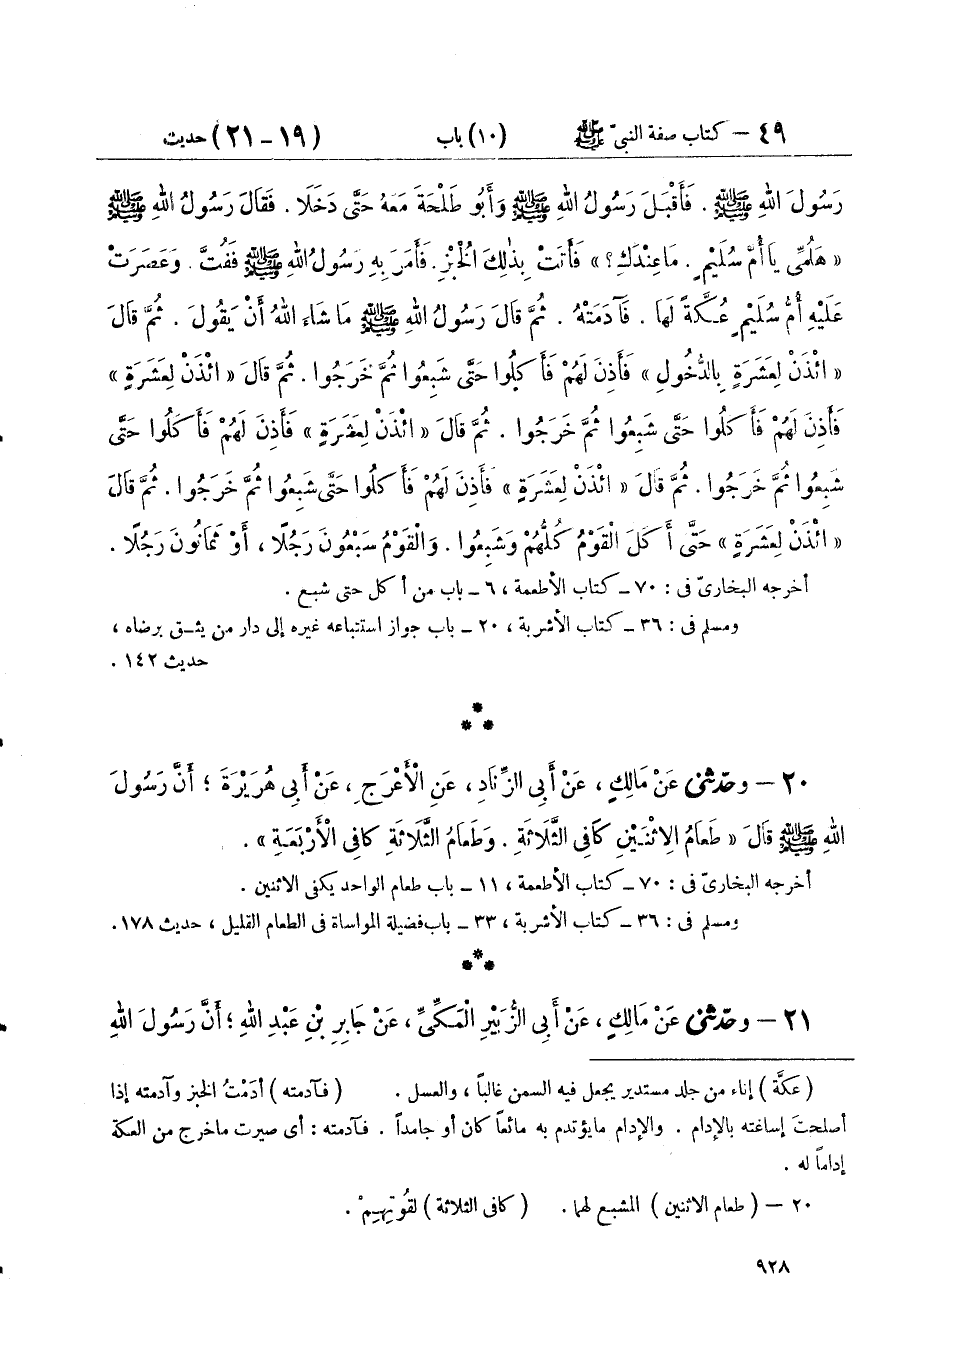 ٤٩ – كتاب صفة النبىّ ﷺ (١٠) باب (١٩ – ٢١) حديث
رَسُولَ اللهِ ﷺ . فَأَقْبَلَ رَسُولُ اللهِ ﷺ وَأَبُو طَلْحَةَ مَعَهُ حَتَّى دَخَلَا . فَقَالَ رَسُولُ اللهِ ﷺ
« هَلُمِّى يَا أُمَّ سُلَيْمٍ . مَا عِنْدَكِ ؟ » فَأَتَتْ بِذٰلِكَ الْخُبْزِ . فَأَمَرَ بِهِ رَسُولُ اللهِ ﷺ فَفُتَّ . وَعَصَرَتْ
عَلَيْهِ أُمُّ سُلَيْمٍ عُكَّةً لَهَا . فَآدَمَتْهُ . ثُمَّ قَالَ رَسُولُ اللهِ ﷺ مَا شَاءَ اللهُ أَنْ يَقُولَ . ثُمَّ قَالَ
« ائْذَنْ لِعَشَرَةٍ بِالدُّخُولِ » فَأَذِنَ لَهُمْ فَأَكَلُوا حَتَّى شَبِعُوا ثُمَّ خَرَجُوا . ثُمَّ قَالَ « ائْذَنْ لِعَشَرَةٍ »
فَأَذِنَ لَهُمْ فَأَكَلُوا حَتَّى شَبِعُوا ثُمَّ خَرَجُوا . ثُمَّ قَالَ « ائْذَنْ لِعَشَرَةٍ » فَأَذِنَ لَهُمْ فَأَكَلُوا حَتَّى
شَبِعُوا ثُمَّ خَرَجُوا . ثُمَّ قَالَ « ائْذَنْ لِعَشَرَةٍ » فَأَذِنَ لَهُمْ فَأَكَلُوا حَتَّى شَبِعُوا ثُمَّ خَرَجُوا . ثُمَّ قَالَ
« ائْذَنْ لِعَشَرَةٍ » حَتَّى أَكَلَ الْقَوْمُ كُلُّهُمْ وَشَبِعُوا . وَالْقَوْمُ سَبْعُونَ رَجُلًا ، أَوْ ثَمَانُونَ رَجُلًا .
أخرجه البخارىّ فى : ٧٠ – كتاب الأطعمة ، ٦ – باب من أكل حتى شبع .
ومسلم فى : ٣٦ – كتاب الأشربة ، ٢٠ – باب جواز استتباعه غيره إلى دار من يثق برضاه ،
حديث ١٤٢ .
***
٢٠ – وحدّثنى عَنْ مَالِكٍ ، عَنْ أَبِى الزِّنَادِ ، عَنِ الْأَعْرَجِ ، عَنْ أَبِى هُرَيْرَةَ ؛ أَنَّ رَسُولَ
اللهِ ﷺ قَالَ « طَعَامُ الِاثْنَيْنِ كَافِى الثَّلَاثَةِ . وَطَعَامُ الثَّلَاثَةِ كَافِى الْأَرْبَعَةِ » .
أخرجه البخارىّ فى : ٧٠ – كتاب الأطعمة ، ١١ – باب طعام الواحد يكفى الاثنين .
ومسلم فى : ٣٦ – كتاب الأشربة ، ٣٣ – باب فضيلة المواساة فى الطعام القليل ، حديث ١٧٨ .
***
٢١ – وحدّثنى عَنْ مَالِكٍ ، عَنْ أَبِى الزُّبَيْرِ الْمَكِّىِّ ، عَنْ جَابِرِ بْنِ عَبْدِ اللهِ ؛ أَنَّ رَسُولَ اللهِ
( عكَّة ) إناء من جلد مستدير يجعل فيه السمن غالباً ، والعسل . ( فآدمته ) أدَمْتُ الخبز وآدمته إذا
أصلحتَ إساغته بالإدام . والإدام ما يؤتدم به مائعاً كان أو جامداً . فآدمته : أى صيرت ماخرج من العكة
إداماً له .
٢٠ – ( طعام الاثنين ) المشبع لهما . ( كافى الثلاثة ) لقُوتِهِمْ .
٩٢٨